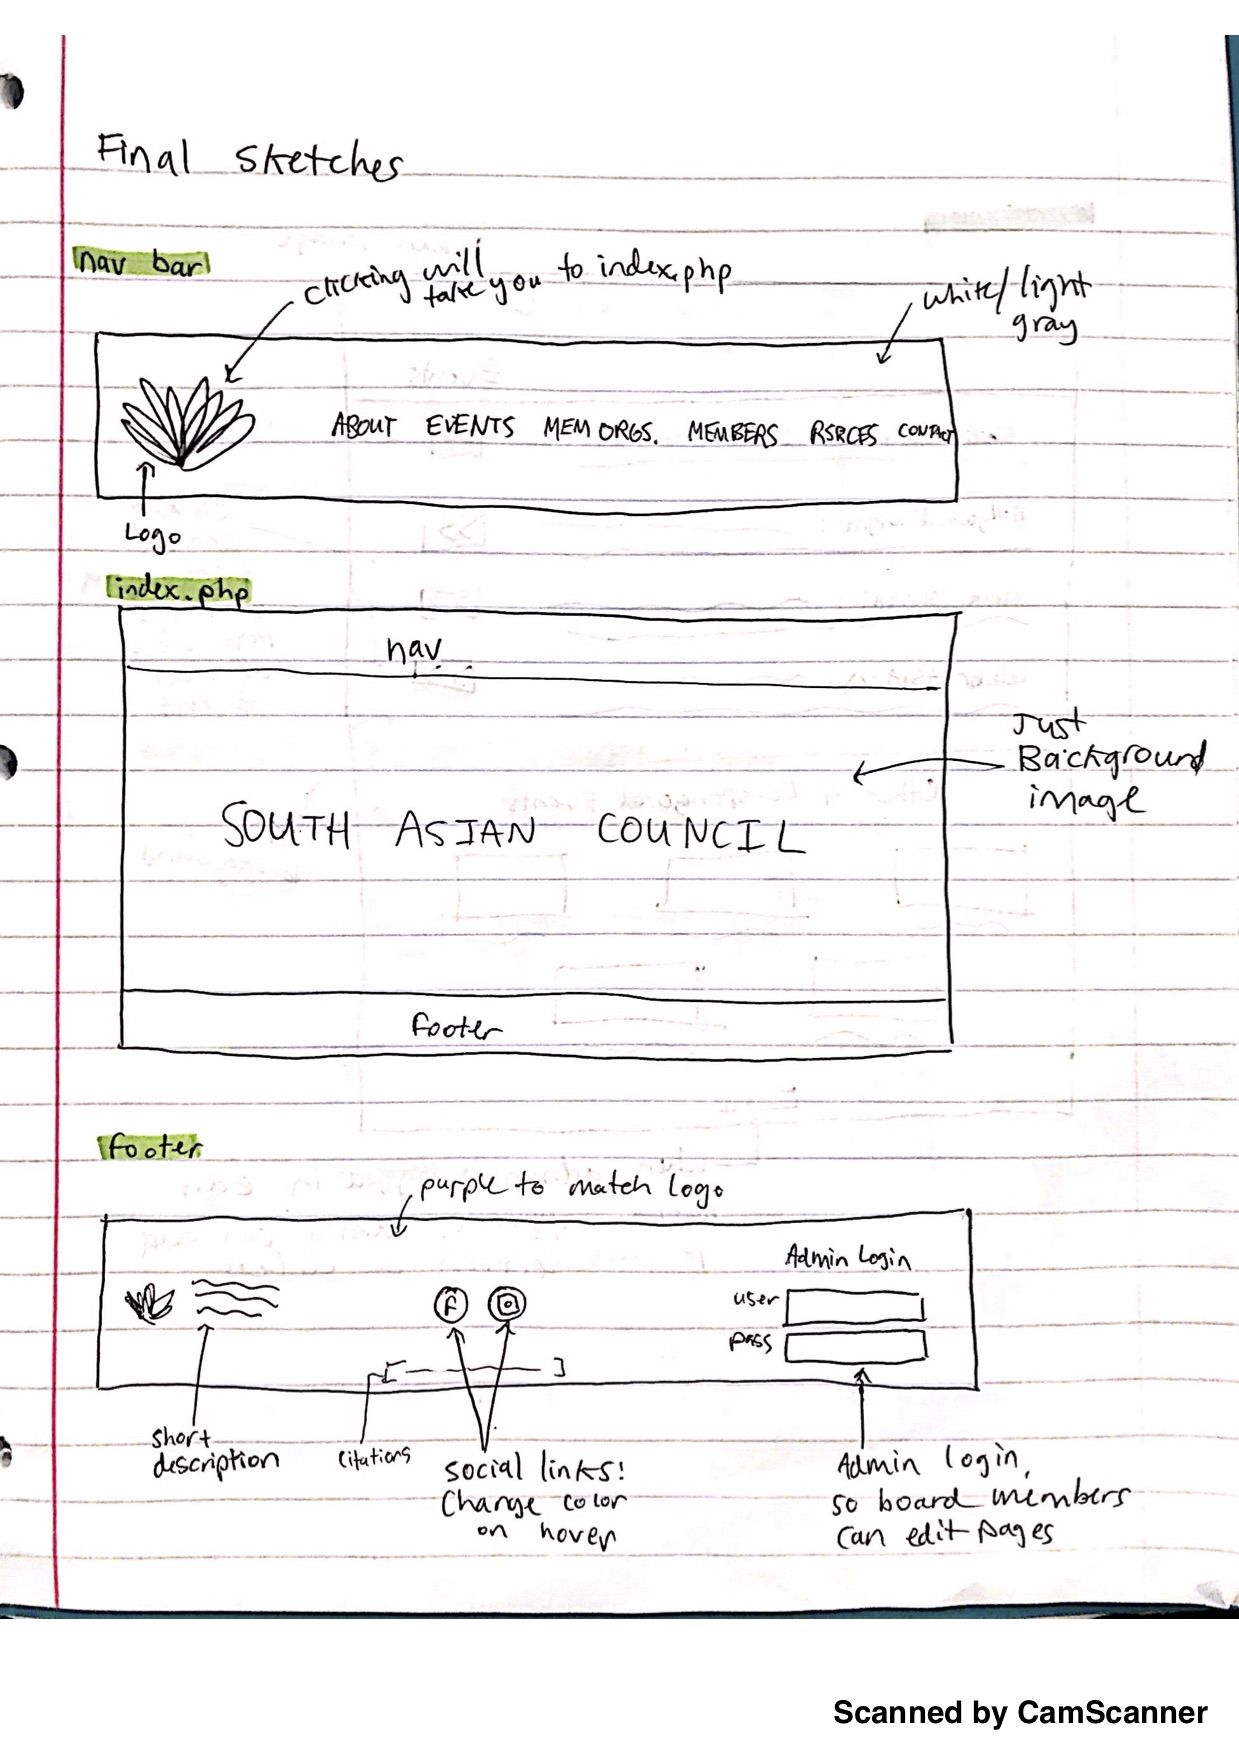 Final Sketches
nav bar
clicking will
take you to index.php
white/light
gray
ABOUT EVENTS MEM ORGS. MEMBERS RSRCES CONTACT
Logo
index.php
nav
Just
Background
image
SOUTH ASIAN COUNCIL
footer
footer
purple to match logo
Admin Login
user
pass
f
short
description
citations
social links!
Change color
on hover
Admin login,
so board members
can edit pages
Scanned by CamScanner